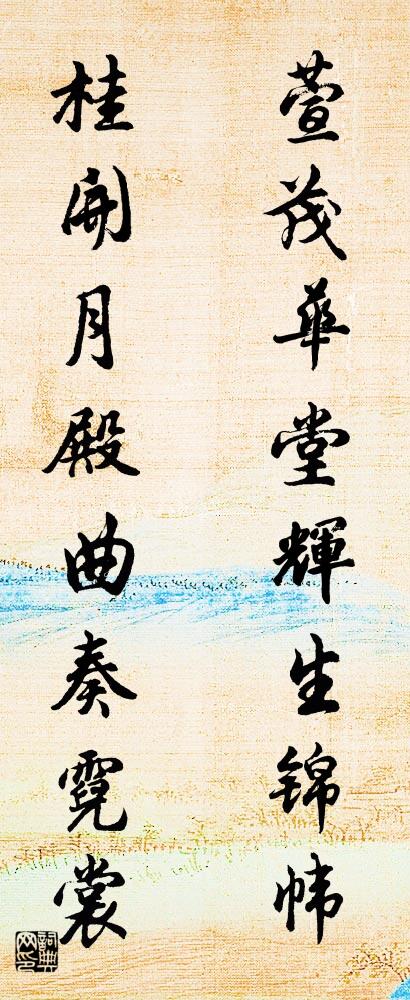 萱茂華堂輝生錦帏
桂開月殿曲奏霓裳
詞典网印